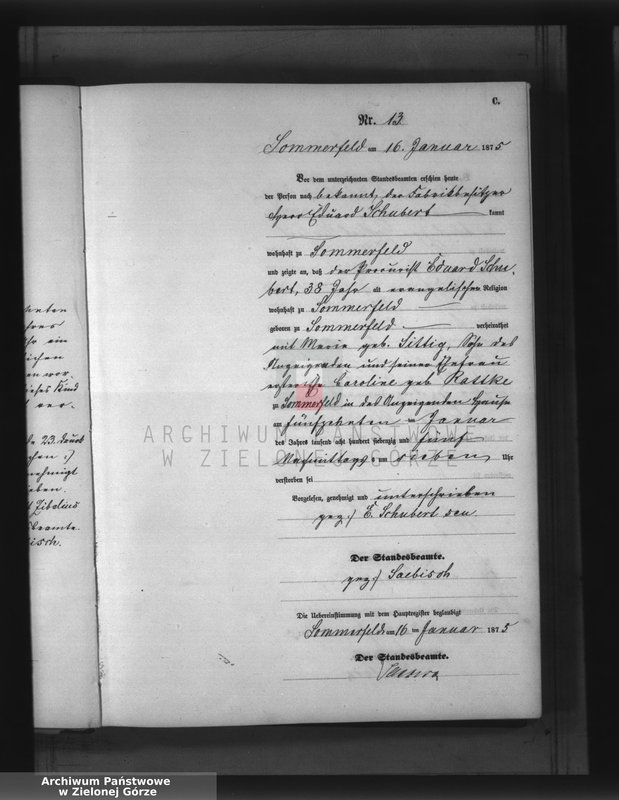 C.
Nr. 13
Sommerfeld am 16. Januar 1875
Vor dem unterzeichneten Standesbeamten erschien heute
der Person nach bekannt, der Fabrikbesitzer
Herr Eduard Schubert kannt
wohnhaft zu Sommerfeld
und zeigte an, daß der Procurist Eduard Schu-
bert, 38 Jahr alt evangelischer Religion
wohnhaft zu Sommerfeld
geboren zu Sommerfeld verheirathet
mit Marie geb. Sittig, Sohn des
Anzeigenden und seiner Ehefrau
Caroline geb. Rattke
zu Sommerfeld in des Anzeigenden Hause
am fünfzehnten Januar
des Jahres tausend acht hundert siebenzig und fünf
Nachmittags um sieben Uhr
verstorben sei
Vorgelesen, genehmigt und unterschrieben
gez.) E. Schubert sen.
Der Standesbeamte.
gez.) Saebisch
Die Uebereinstimmung mit dem Hauptregister beglaubigt
Sommerfeld am 16 ten Januar 1875
Der Standesbeamte.
ein
ichen
Kind
23.
nehmigt
eben.
Zibelius
beamte
isch.
ARCHIWUM PAŃSTWOWE
W ZIELONEJ GÓRZE
Archiwum Państwowe
w Zielonej Górze